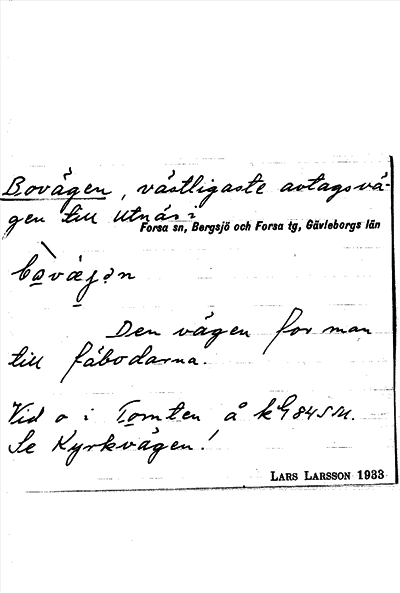 Bovägen, västligaste avtagsvä-
gen till Utnäs i
Forsa sn, Bergsjö och Forsa tg, Gävleborgs län
Den vägen for man
till fäbodarna.
Vid o i Tomten å
Se Kyrkvägen!
LARS LARSSON 1933